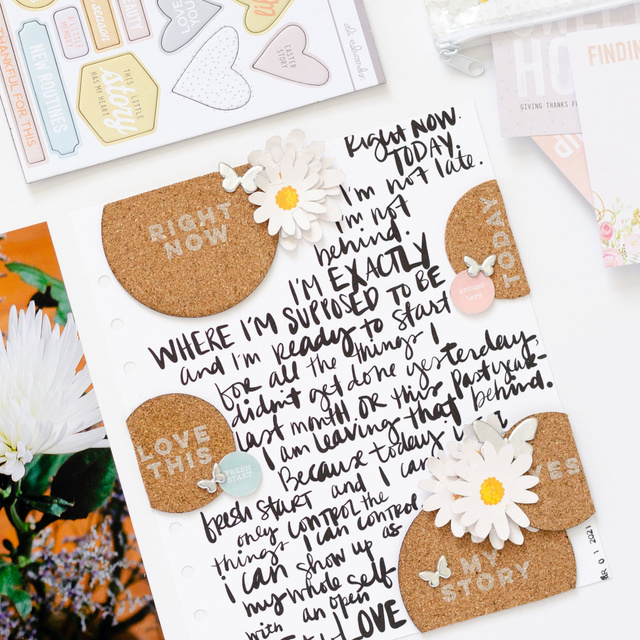 THANKFUL FOR THIS
NEW ROUTINES
season
THIS LITTLE
story
HAS MY HEART
LOVE
life
EASTER
STORY
HO
GIVING THANKS F
FINDING
Right NOW.
TODAY.
I'm not late.
I'm not
behind.
I'm EXACTLY
WHERE I'M SUPPOSED TO BE
and I'm Ready to start
for all the things I
didn't get done yesterday,
last month OR this past year-
I am leaving that behind.
Because today, I
fresh START and I can
only CONTROL the
things I can control
I can show up as
my whole self
with an open
LOVE
RIGHT
NOW
TODAY
LOVE
THIS
FRESH
START
YES
MY
STORY
01 2021